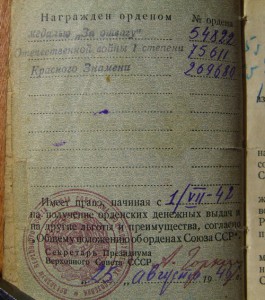 Награжден орденом № ордена
медалью „За отвагу" 54822
Отечественной войны I степени 75611
Красного Знамени 269680
Имеет право, начиная с 1/VII-42
на получение орденских денежных выдач и
на другие льготы и преимущества, согласно
„Общему положению об орденах Союза ССР".
Секретарь Президиума
Верховного Совета СССР
"25" августа 194